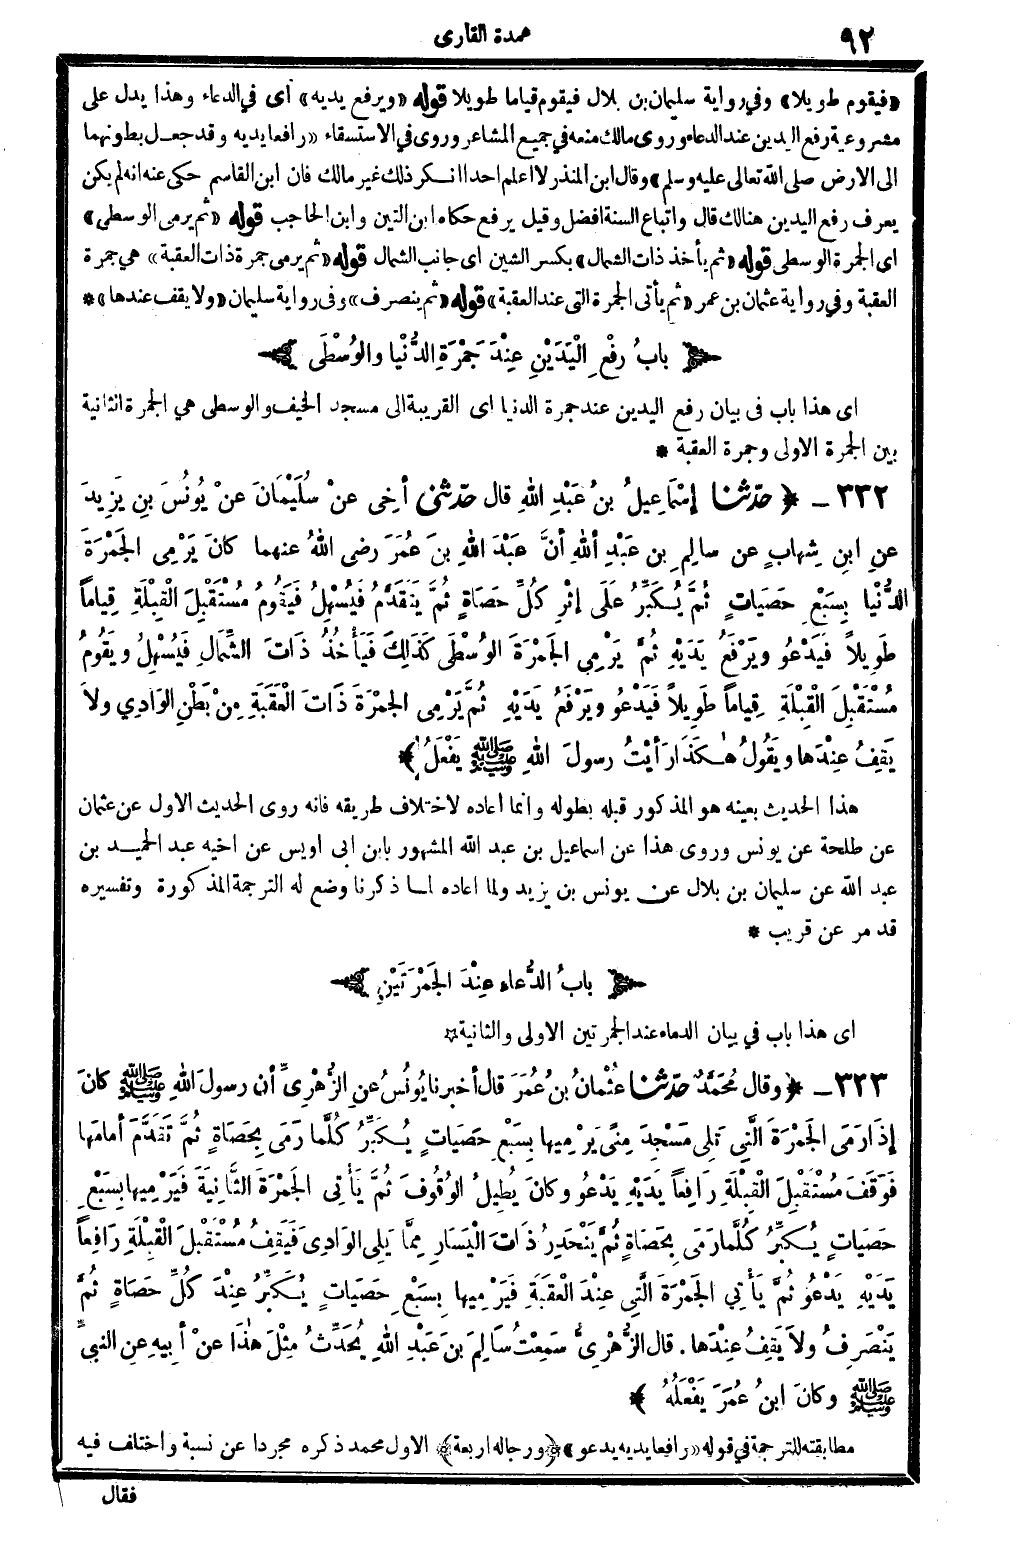 ٩٢
عمدة القارى
«فيقوم طويلا» وفي رواية سليمان بن بلال فيقوم قياما طويلا قوله «ويرفع يديه» اى في الدعاء وهذا يدل على
مشروعية رفع اليدين عند الدعاء وروى مالك منعه في جميع المشاعر وروى في الاستسقاء «رافعا يديه وقد جعل بطونهما
الى الارض صلى الله تعالى عليه وسلم» وقال ابن المنذر لا اعلم احدا انكر ذلك غير مالك فان ابن القاسم حكى عنه انه لم يكن
يعرف رفع اليدين هنالك قال واتباع السنة افضل وقيل يرفع حكاه ابن التين وابن الحاجب قوله «ثم يرمى الوسطى»
اى الجمرة الوسطى قوله «ثم يأخذ ذات الشمال» بكسر الشين اى جانب الشمال قوله «ثم يرمى جمرة ذات العقبة» هي جمرة
العقبة وفي رواية عثمان بن عمر «ثم يأتى الجمرة التى عند العقبة» قوله «ثم ينصرف» وفى رواية سليمان «ولا يقف عندها» *
بابُ رفْعِ الْيَدَيْنِ عِنْدَ جَمْرَةِ الدُّنْيا والوُسْطَى
اى هذا باب فى بيان رفع اليدين عند جمرة الدنيا اى القريبة الى مسجد الخيف والوسطى هي الجمرة الثانية
بين الجمرة الاولى وجمرة العقبة *
٣٣٢ ـ ﴿ حدّثنا إسْماعِيلُ بنُ عَبْدِ اللهِ قال حدّثنى أخِى عنْ سُلَيْمَانَ عنْ يُونُسَ بنِ يَزِيدَ
عنِ ابنِ شِهابٍ عن سالِمِ بنِ عَبْدِ اللهِ أنَّ عَبْدَ اللهِ بنَ عُمَرَ رضى اللهُ عنهما كانَ يَرْمِى الجَمْرَةَ
الدُّنْيا بِسَبْعِ حَصَياتٍ ثُمَّ يُكَبِّرُ علَى إثْرِ كُلِّ حَصاةٍ ثُمَّ يَتَقَدَّمُ فَيُسْهِلُ فَيَقُومُ مُسْتَقْبِلَ الْقِبْلَةِ قِياماً
طَوِيلاً فَيَدْعُو ويَرْفَعُ يَدَيْهِ ثُمَّ يَرْمِى الجَمْرَةَ الوُسْطَى كَذَلِكَ فَيَأْخُذُ ذَاتَ الشِّمالِ فَيُسْهِلُ ويَقُومُ
مُسْتَقْبِلَ الْقِبْلَةِ قِياماً طَوِيلاً فَيَدْعُو ويَرْفَعُ يَدَيْهِ ثُمَّ يَرْمِى الجَمْرَةَ ذَاتَ الْعَقَبَةِ مِنْ بَطْنِ الوَادِي ولاَ
يَقِفُ عِنْدَها ويَقُولُ هٰكَذَا رَأيْتُ رسولَ اللهِ ﷺ يَفْعَلُ ﴾
هذا الحديث بعينه هو المذكور قبله بطوله وانما أعاده لاختلاف طريقه فانه روى الحديث الاول عن عثمان
عن طلحة عن يونس وروى هذا عن اسماعيل بن عبد الله المشهور بابن ابى اويس عن اخيه عبد الحميد بن
عبد الله عن سليمان بن بلال عن يونس بن يزيد ولما اعاده لما ذكرنا وضع له الترجمة المذكورة وتفسيره
قد مر عن قريب *
بابُ الدُّعاءِ عِنْدَ الجَمْرَتَيْنِ
اى هذا باب في بيان الدعاء عند الجمرتين الاولى والثانية ☆
٣٢٣ ـ ﴿ وقال مُحَمَّدٌ حدّثنا عُثْمانُ بنُ عُمَرَ قال أخبرنا يُونُسُ عنِ الزُّهْرِىِّ أن رسولَ اللهِ ﷺ كانَ
إذَا رَمَى الجَمْرَةَ الَّتِي تَلِى مَسْجِدَ مِنًى يَرْمِيها بِسَبْعِ حَصَياتٍ يُكَبِّرُ كُلَّما رَمَى بِحَصَاةٍ ثُمَّ تَقَدَّمَ أمامَها
فَوَقَفَ مُسْتَقْبِلَ الْقِبْلَةِ رَافِعاً يَدَيْهِ يَدْعُو وكانَ يُطِيلُ الوُقُوفَ ثُمَّ يَأتِى الجَمْرَةَ الثَّانِيَةَ فَيَرْمِيها بِسَبْعِ
حَصَياتٍ يُكَبِّرُ كُلَّمارَمَى بِحَصَاةٍ ثُمَّ يَنْحَدِرُ ذَاتَ الْيَسَارِ مِمَّا يَلِى الوَادِىَ فَيَقِفُ مُسْتَقْبِلَ الْقِبْلَةِ رَافِعاً
يَدَيْهِ يَدْعُو ثُمَّ يَأتِي الجَمْرَةَ الَّتِى عِنْدَ الْعَقَبَةِ فَيَرْمِيها بِسَبْعِ حَصَياتٍ يُكَبِّرُ عِنْدَ كلِّ حَصَاةٍ ثُمَّ
يَنْصَرِفُ ولاَ يَقِفُ عِنْدَها . قال الزُّهْرِىُّ سَمِعْتُ سَالِمَ بنَ عَبْدِ اللهِ يُحَدِّثُ مِثْلَ هٰذَا عنْ أبِيهِ عنِ النبىِّ
ﷺ وكانَ ابنُ عُمَرَ يَفْعَلُهُ ﴾
مطابقته للترجمة في قوله «رافعا يديه يدعو» ﴿ورجاله اربعة﴾ الاول محمد ذكره مجردا عن نسبة واختلف فيه
فقال